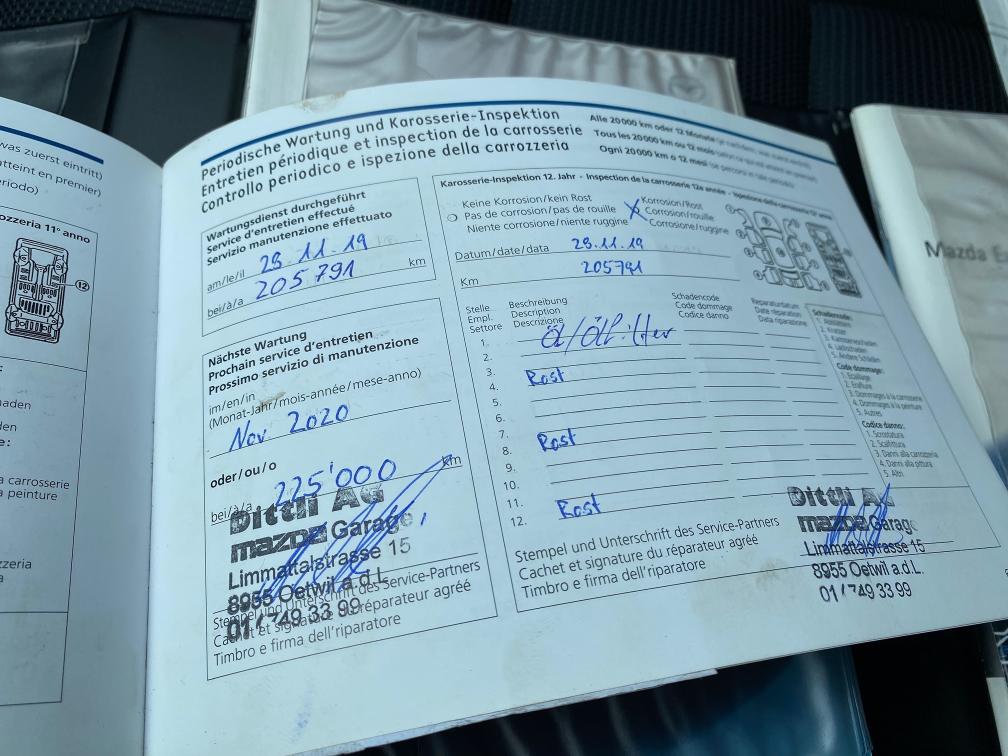 was zuerst eintritt)
atteint en premier)
eriodo)
ozzeria 11° anno
12
:
naden
den
e:
a carrosserie
a peinture
zzeria
a
Periodische Wartung und Karosserie-Inspektion
Entretien périodique et inspection de la carrosserie
Controllo periodico e ispezione della carrozzeria
Alle 20000 km oder 12 Monate
Tous les 20000 km ou 12 mois
Ogni 20000 km o 12 mesi
Wartungsdienst durchgeführt
Service d'entretien effectué
Servizio manutenzione effettuato
am/le/il 28.11.19
bei/à/a 205791 km
Nächste Wartung
Prochain service d'entretien
Prossimo servizio di manutenzione
im/en/in
(Monat-Jahr/mois-année/mese-anno)
Nov. 2020
oder/ou/o
bei/à/a 225'000 km
Dittli AG
mazda Garage
Limmattalstrasse 15
8955 Oetwil a.d.L.
01 / 749 33 99
Stempel und Unterschrift des Service-Partners
Cachet et signature du réparateur agréé
Timbro e firma dell'riparatore
Karosserie-Inspektion 12. Jahr - Inspection de la carrosserie 12e année - Ispezione della carrozzeria 12° anno
Keine Korrosion/kein Rost
Pas de corrosion/pas de rouille
Niente corrosione/niente ruggine
X Korrosion/Rost
Corrosion/rouille
Corrosione/ruggine
Datum/date/data 28.11.19
Km 205791
Stelle Beschreibung Schadencode Reparaturdatum
Empl. Description Code dommage Date réparation
Settore Descrizione Codice danno Data riparazione
1. Öl/Ölfilter
2.
3.
4. Rost
5.
6.
7.
8. Rost
9.
10.
11.
12. Rost
Schadencode:
2. Kratzer
3. Karosserieschäden
4. Lackschäden
5. Andere Schäden
Code dommage:
1. Ecaillage
2. Eraflure
3. Dommages à la carrosserie
4. Dommages à la peinture
5. Autres
Codice danno:
1. Scrostatura
2. Scalfittura
3. Danni alla carrozzeria
4. Danni alla pittura
5. Altri
Stempel und Unterschrift des Service-Partners
Cachet et signature du réparateur agréé
Timbro e firma dell'riparatore
Dittli AG
mazda Garage
Limmattalstrasse 15
8955 Oetwil a.d.L.
01 / 749 33 99
Mazda